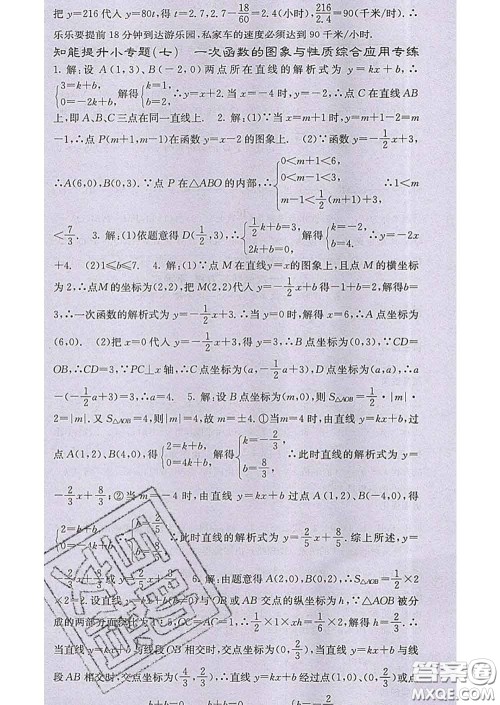 把 y=216 代入 y=80t,得 t=2.7,2.7-18/60=2.4(小时),216/2.4=90(千米/时).∴
乐乐要提前 18 分钟到达游乐园,私家车的速度必须达到 90 千米/小时.
知能提升小专题(七) 一次函数的图象与性质综合应用专练
1. 解:设 A(1,3)、B(-2,0)两点所在直线的解析式为 y=kx+b,∴
{3=k+b, 0=-2k+b, 解得{k=1, b=2, ∴y=x+2. 当 x=-4 时,y=-2,∴点 C 在直线 AB
上,即 A、B、C 三点在同一直线上. 2. 解:(1)∵当 x=m+1 时,y=m+1-2=m
-1,∴点 P(m+1,m-1)在函数 y=x-2 的图象上. (2)∵函数 y=-1/2x+3,
∴A(6,0),B(0,3).∵点 P 在△ABO 的内部,∴{0<m+1<6, 0<m-1<3, m-1<-1/2(m+1)+3, ∴1<m
<7/3. 3. 解:(1)依题意得 D(1/2,3),∴{1/2k+b=3, 2k+b=0, 解得{k=-2, b=4, ∴y=-2x
+4. (2)1≤b≤7. 4. 解:(1)∵点 M 在直线 y=x 的图象上,且点 M 的横坐标
为 2,∴点 M 的坐标为(2,2),把 M(2,2)代入 y=-1/2x+b 得-1+b=2,解得 b=
3,∴一次函数的解析式为 y=-1/2x+3.∴当 y=0 时,解得 x=6,∴A 点坐标为
(6,0). (2)把 x=0 代入 y=-1/2x+3,得 y=3,∴B 点坐标为(0,3).∵CD=
OB,∴CD=3,∵PC⊥x 轴,∴C 点坐标为(a,-1/2a+3),D 点坐标为(a,a),∴a
-(-1/2a+3)=3,∴a=4. 5. 解:设 B 点坐标为(m,0),则 S△AOB=1/2·|m|·
2=|m|. 又 S△AOB=4,则|m|=4,故 m=±4. ①当 m=4 时,由直线 y=kx+b,过
点 A(1,2)、B(4,0),得{2=k+b, 0=4k+b, 解得{k=-2/3, b=8/3, ∴此时直线的解析式为 y=
-2/3x+8/3;②当 m=-4 时,由直线 y=kx+b 过点 A(1,2)、B(-4,0),得
{2=k+b, ∴此时直线的解析式为 y=2/5x+8/5. 综上所述,y=
6. 解:由题意得 A(2,0),B(0,2),∴S△AOB=1/2×
2×2=2. 设直线 y=kx+b(k≠0)与 OB 或 AB 交点的纵坐标为 h,∵△AOB 被分
成的两部分面积比为 1:5,OC=AC=1,∴1/2×1×h=2×1/6,解得 h=2/3.∴
当直线 y=kx+b 与线段 OB 相交时,交点坐标为(0,2/3),当直线 y=kx+b 与线
段 AB 相交时,交点坐标为(4/3,2/3).∴直线 y=kx+b 经过点(1,0),(0,2/3)或点
答案圈
MXQE.COM